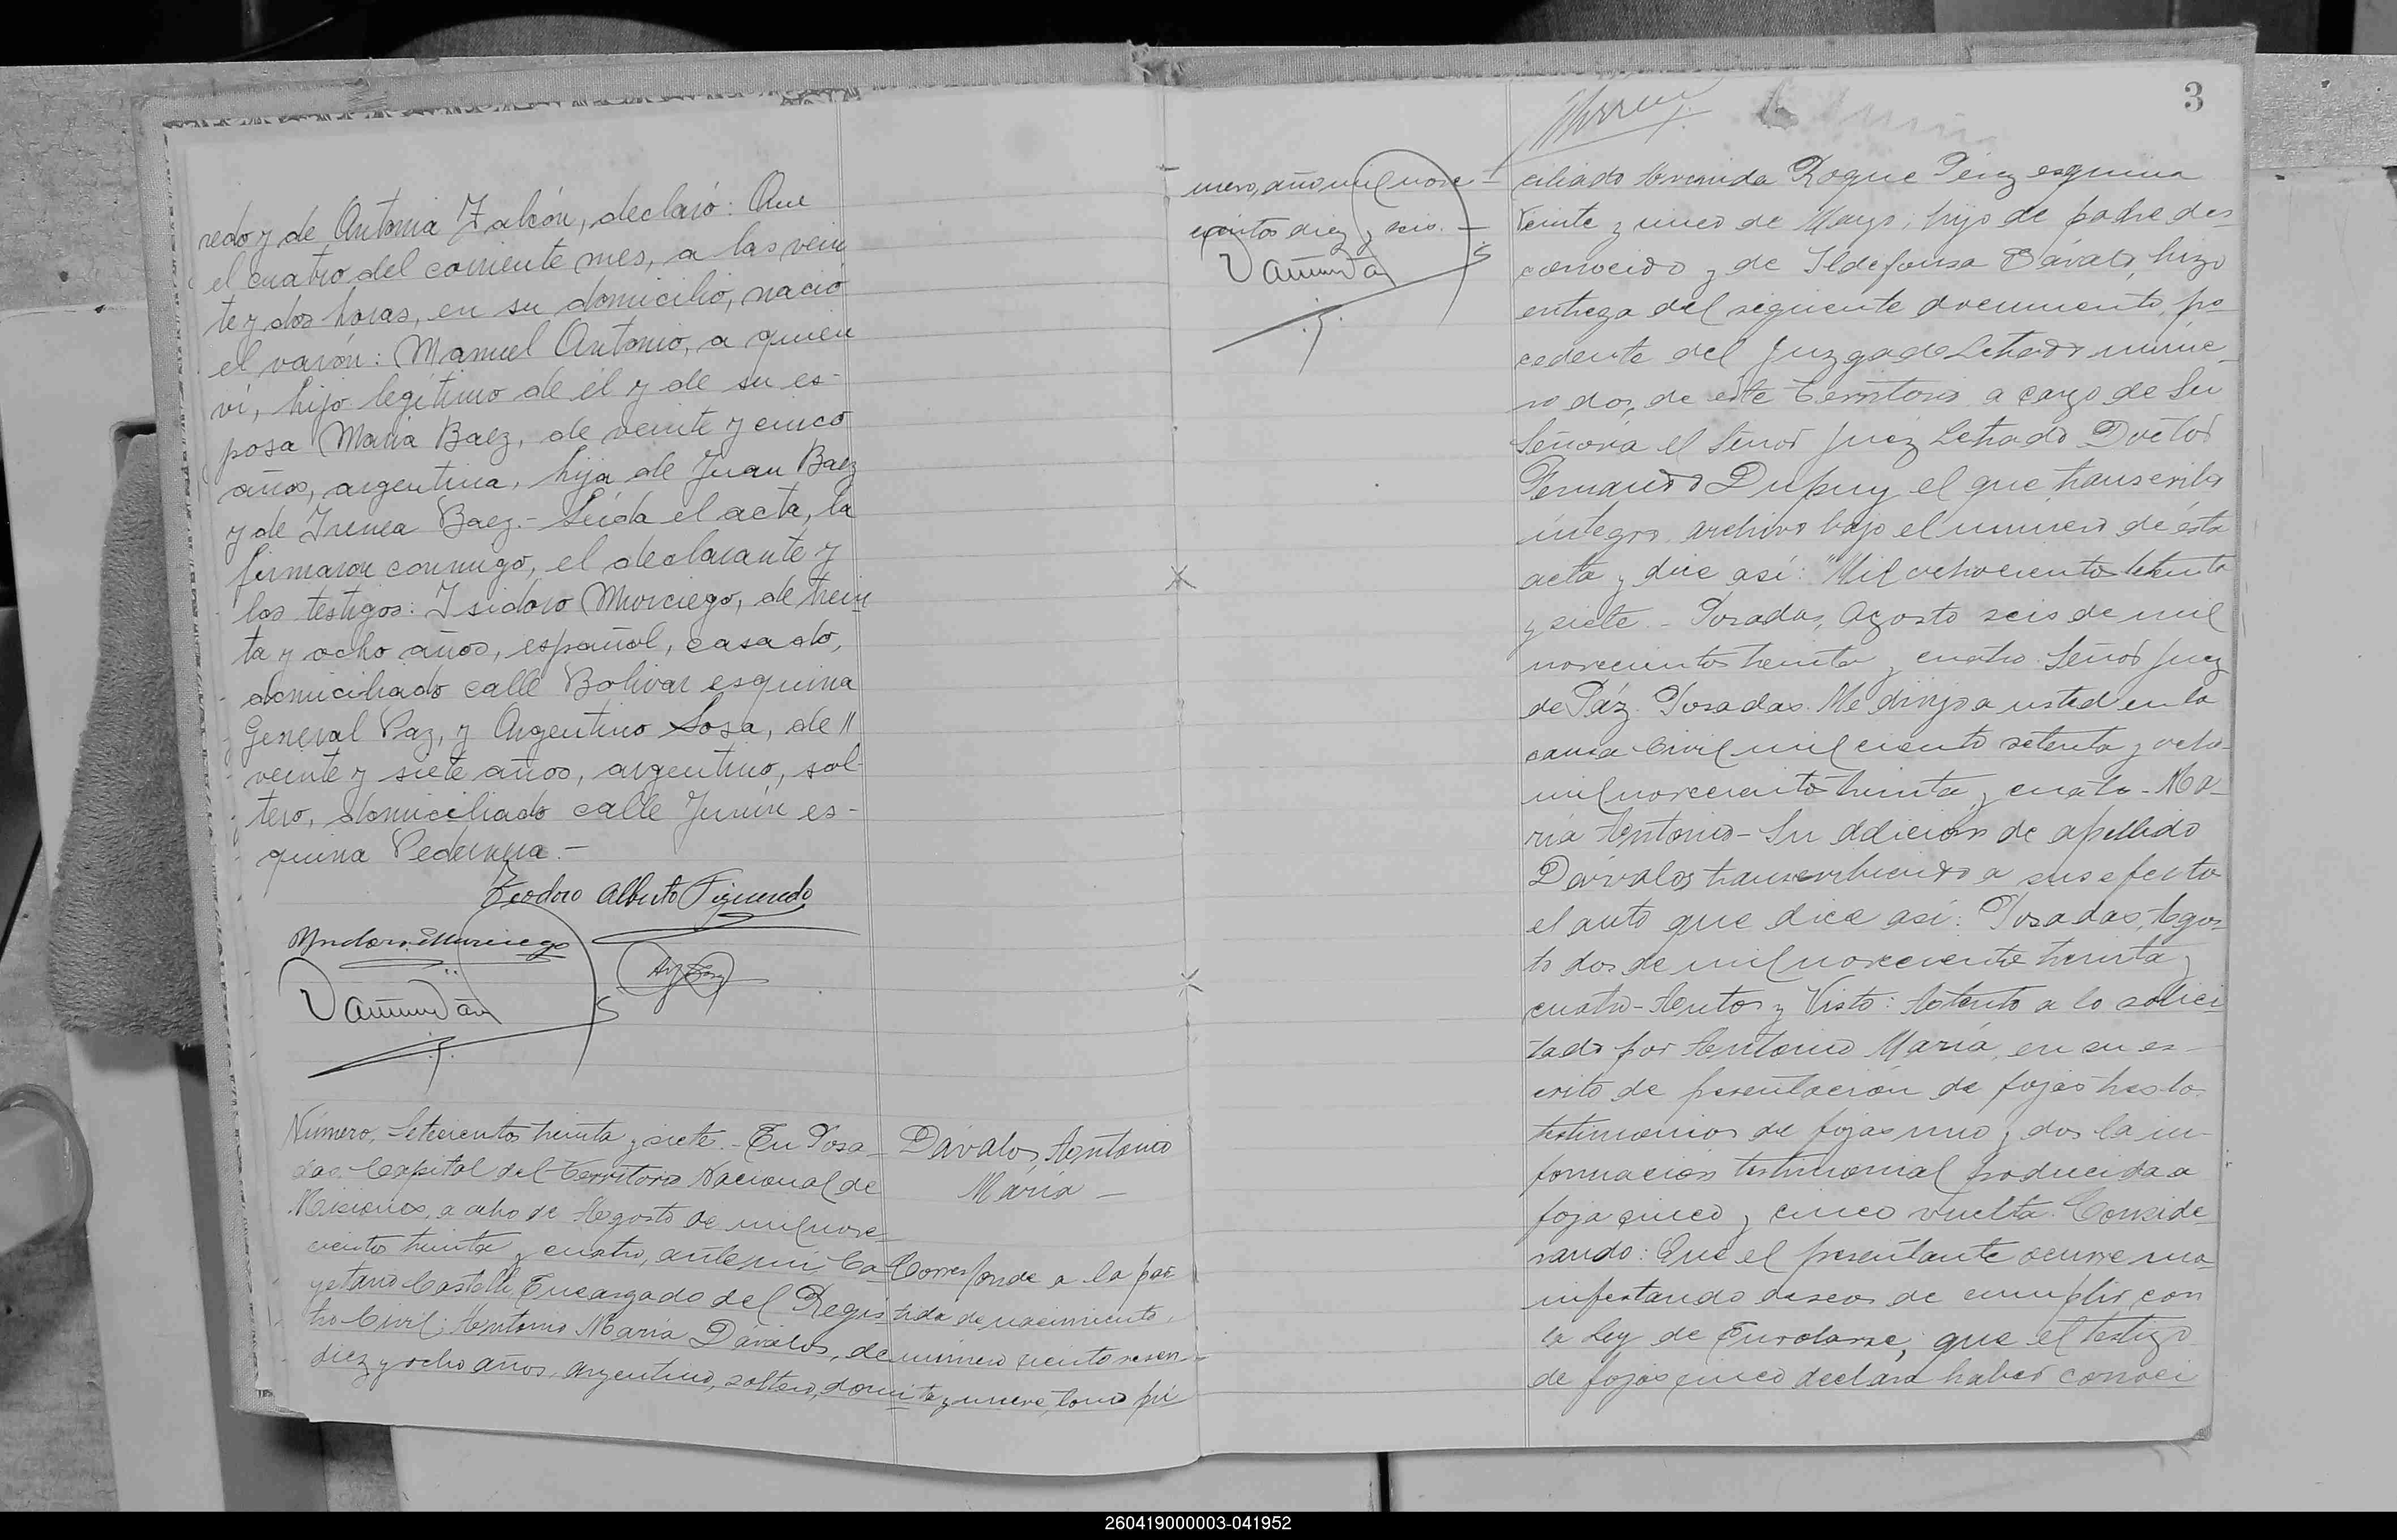 redo y de Antonia Falcón, declaró: Que
el cuatro del corriente mes, a las vein
te y dos horas, en su domicilio, nació
el varón: Manuel Antonio, a quien
ví, hijo legítimo de él y de su es-
posa Maria Baez, de veinte y cinco
años, argentina, hija de Juan Baez
y de Irenea Baez.- Leída el acta, la
firmaron conmigo, el declarante y
los testigos: Isidoro Murciego, de trein
ta y ocho años, español, casado,
domiciliado calle Bolivar esquina
General Paz, y Argentino Sosa, de "
veinte y siete años, argentino, sol-
tero, domiciliado calle Junín es-
quina Pedernera.-
Teodoro Alberto Figueredo
Isidoro Murciego
Número, Setecientos treinta y siete.- En Posa-
das, Capital del Territorio Nacional de
Misiones, a ocho de Agosto de mil nove-
cientos treinta y cuatro, ante mí Ca-
yetano Castelli Encargado del Regis
tro Civil; Antonio María Dávalos, de
diez y ocho años, argentino, soltero, domi
Dávalos, Antonio
María -
Corresponde a la par
tida de nacimiento,
número ciento sesen-
ta y nueve, tomo pri
mero, año mil nove-
cientos diez y seis. -
3
ciliado Avenida Roque Perez esquina
Veinte y cinco de Mayo; hijo de padre des-
conocido y de Ildefonsa Dávalos, hizo
entrega del siguiente documento, pro
cedente del Juzgado Letrado núme-
ro dos, de este Territorio a cargo de Su
Señoría el Señor Juez Letrado Doctor
Fernando Dupuy, el que transcribo
íntegro, archivo bajo el número de ésta
acta y dice así: "Mil ochocientos setenta
y siete.- Posadas, Agosto seis de mil
novecientos treinta y cuatro. Señor Juez
de Páz. Posadas. Me dirijo a usted en la
causa Civil mil ciento setenta y ocho-
mil novecientos treinta y cuatro- Ma-
ría Antonio- Su adición de apellido
Dávalos transcribiendo a sus efectos
el auto que dice así: Posadas, Agos-
to dos de mil novecientos treinta y
cuatro- Autos y Visto: Atento a lo solici
tado por Antonio María, en su es-
crito de presentación de fojas tres lo
testimonios de fojas uno y dos la in-
formación testimonial producida a
foja cinco y cinco vuelta. Conside-
rando: Que el presentante ocurre ma-
nifestando deseos de cumplir con
la Ley de Enrolarse; que el testigo
de fojas cinco declara haber conoci